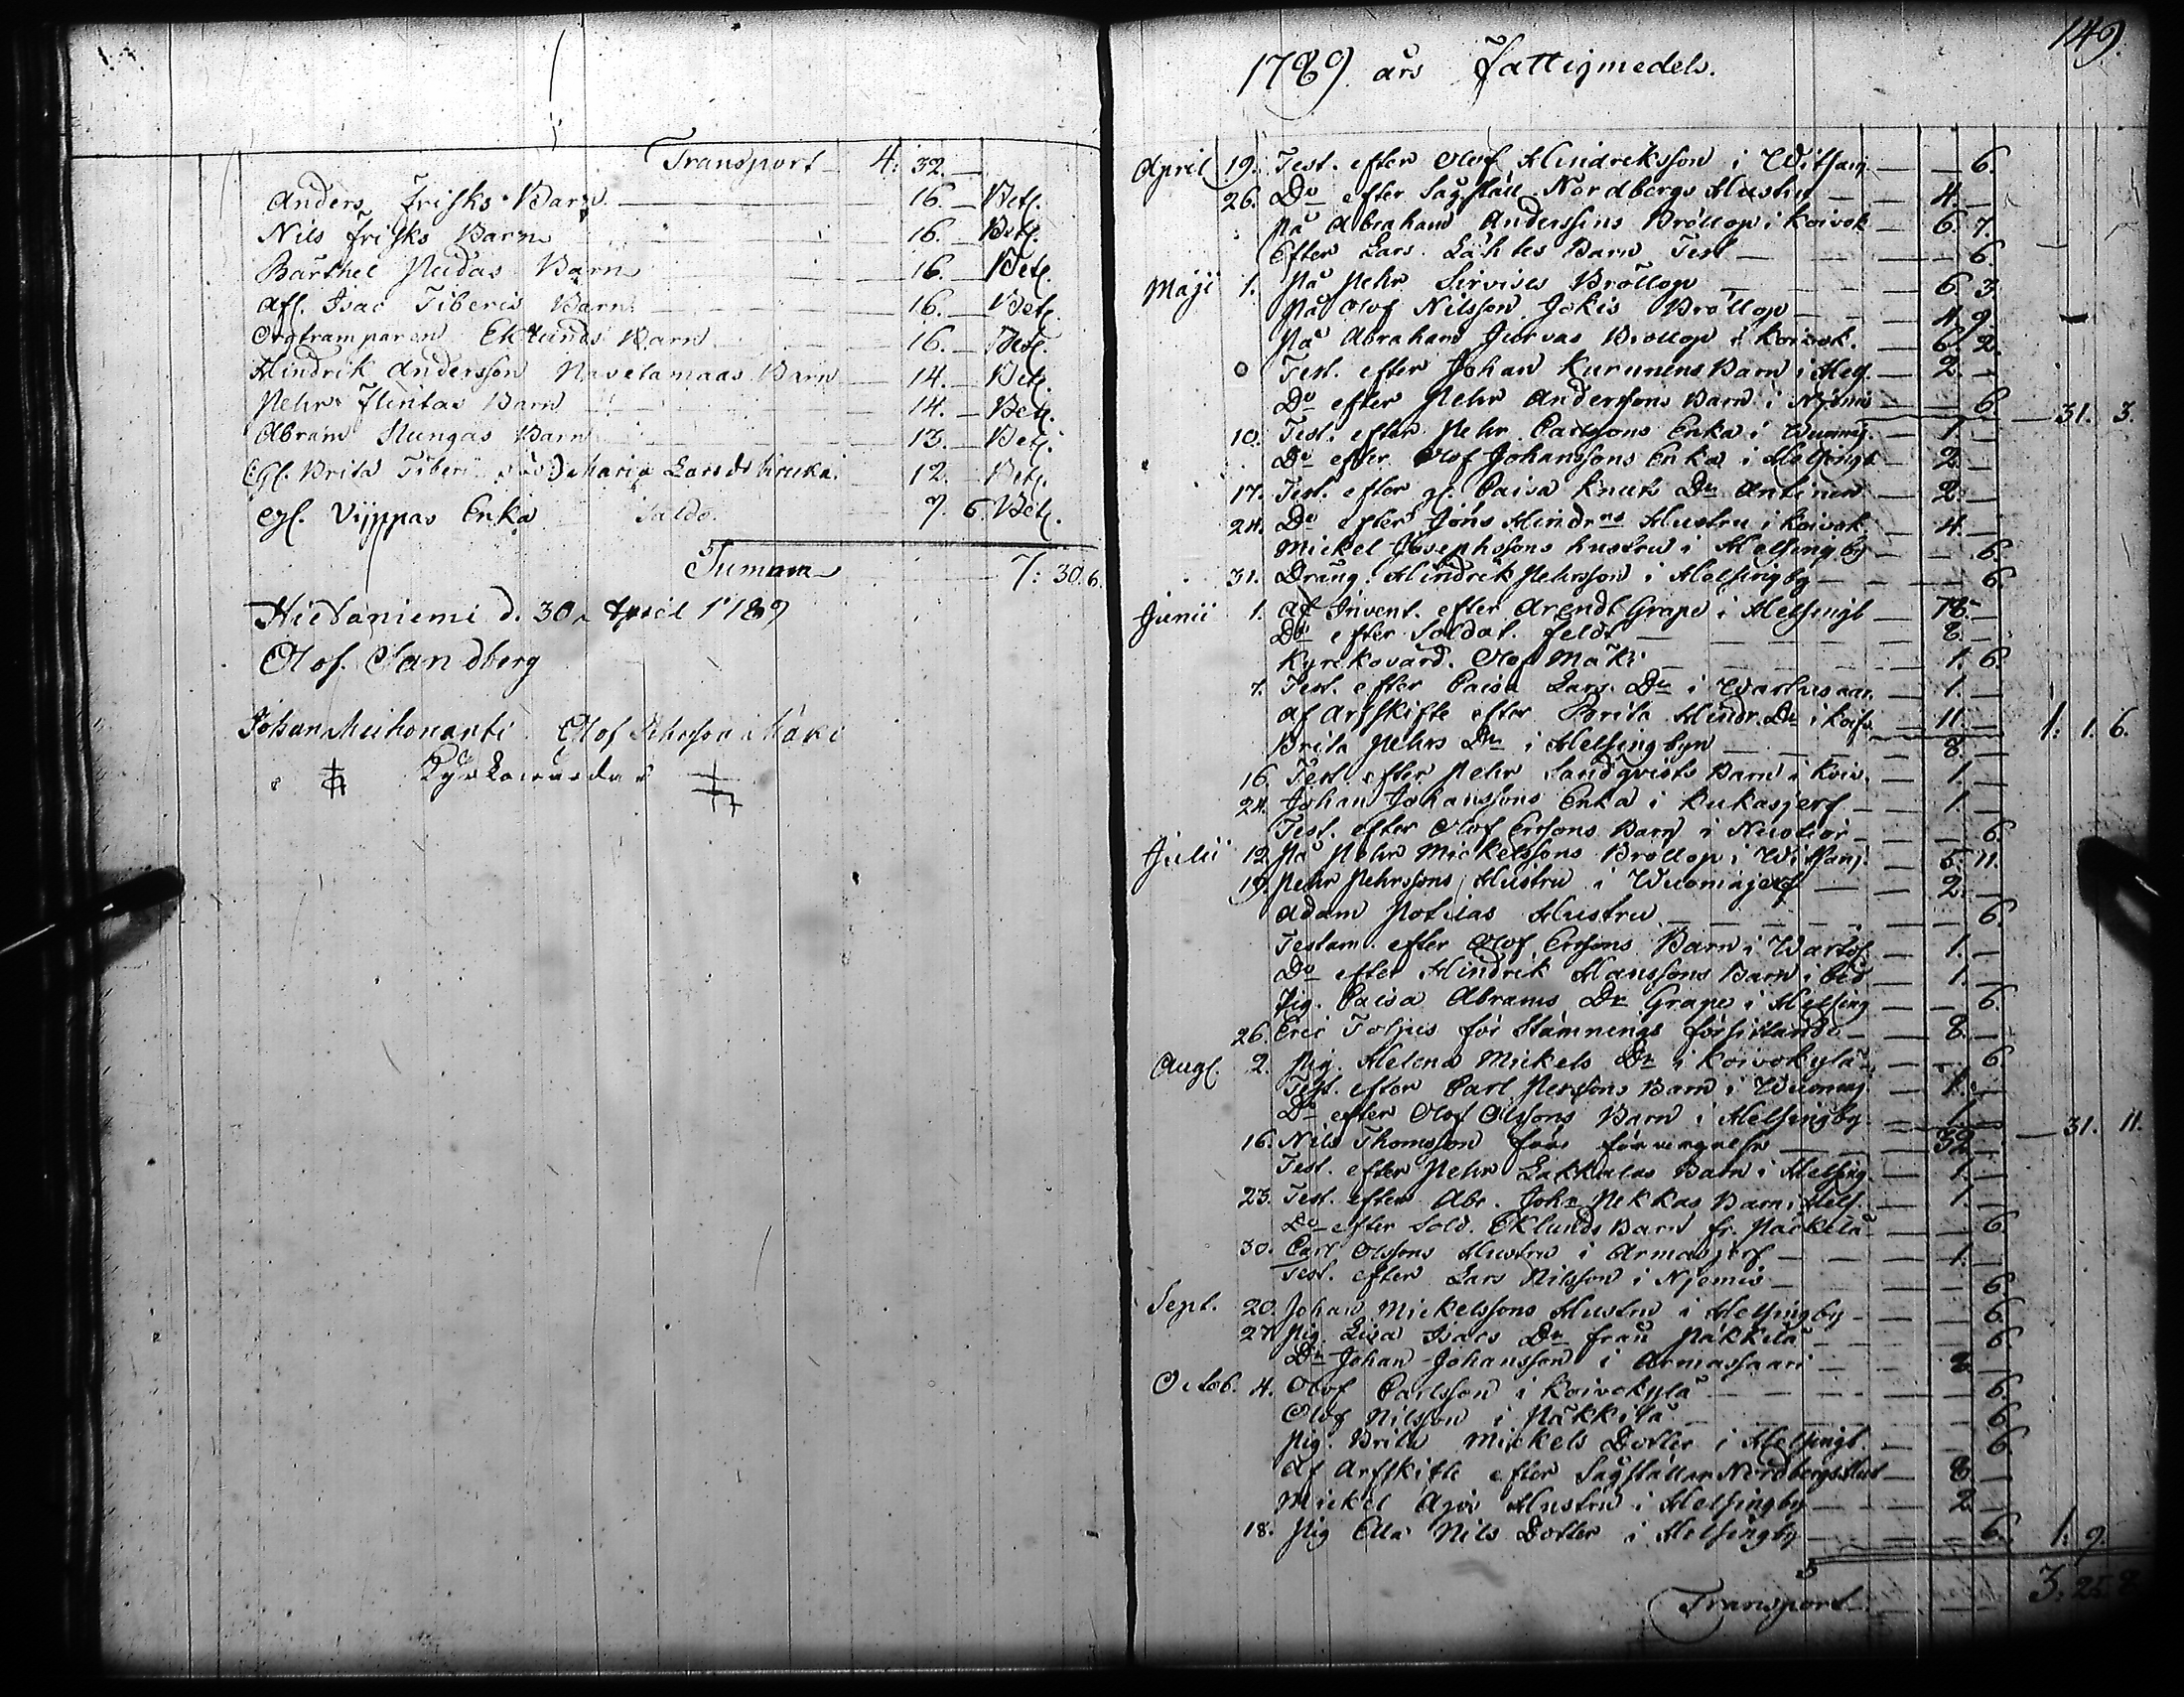 Transport 4: 32. —
Anders Frisks Barn — 16. — Bet.
Nils Frisks Barn — 16. — Bet.
Barthel Pudas Barn — 16. — Bet.
Afl. Isac Tiberis Barn — 16. — Bet.
Orgtramparen Eklunds Barn — 16. — Bet.
Hindrik Andersson Navetamaas Barn — 14. — Bet.
Pehr Flintas Barn — 14. — Bet.
Abram Hungas Barn — 13. — Bet.
Maria Lars dr Kruka. 12. Bet.
Viippas Enka Saldo. 7. 6. Bet.
Summa 7: 30. 6.
Hietaniemi d. 30 April 1789
Olof Sandberg
Johan Muhonanti Olof Pehrsson Mäki
Kyrkowärdar
149.
1789 års Fattigmedels.
April 19. Test. efter Olof Hindriksson i Witsan. — 6.
26. Do efter Sagställ. Nordbergs Hustru — 4. —
På Abraham Anderssons Bröllop i Koivok — 6. 7.
Efter Lars Lähtes Barn Test — 6.
Maji 1. På Pehr Sirvies Bröllop — 6. 3
På Olof Nilsson Jokis Bröllop — 4. 9.
På Abraham JuRvas Bröllop i Koivok. — 6. 2.
Test. efter Johan Kurunens Barn i Hels. — 2. —
Do efter Pehr Anderssons Barn i Njemis — 6. — 31. 3.
10. Test. efter Pehr Carlssons Enka i Wuomaj. — 1. —
Do efter Olof Johanssons Enka i Helsingb — 2. —
17. Test. efter Caisa Knuts Dr Antinen — 2. —
24. Do efter Jöns Hindrns Hustru i Koivok. — 4. —
Mickel Josephssons hustru i Helsingby — 6.
31. Dräng. Hindrik Pehrsson i Helsingby — 6.
Junii 1. Af Invent. efter Arendt Grape i Helsingb — 18. —
Do efter Soldat. Feldt — 8. —
Kyrkovärd. Olof Mäki — 1. 6.
7. Test. efter Caisa Lars Dr i — 1. —
Af Arfskifte efter Brita Hindr. Dr i Koif. — 11. — 1: 1. 6.
Brita Pehrs Dr i Helsingbyn — 8. —
16. Test. efter Pehr Sandqvists Barn i Koiv. — 1. —
24. Johan Johanssons Enka i Kukasjerf — 1. —
Test. efter Olof Ersons Barn i — 6.
Julii 12. På Pehr Mickelssons Bröllop i Witsanj. — 5. 11.
19. Pehr Pehrssons Hustru i Wuomajerf — 2. —
Adam Potilas Hustru — 6.
Testam. efter Olof Ersons Barn i — 1. —
Do efter Hindrik Hanssons Barn i — 1. —
Pig. Caisa Abrams Dr Grape i Helsing — 6.
26. Eric Toljus för Stämnings försittande — 8. —
Aug. 2. Pig. Helena Mickels Dr i Koivokylä — 6.
Test. efter Carl Perssons Barn i Wuomaj. — 1. —
Do efter Olof Olssons Barn i Helsingby — 1. — 31. 11.
16. Nils Thomsson från — 32. —
Test. efter Pehr Lakkalas Barn i Helsing. — 1. —
23. Test. efter Abr. Johs Pekkas Barn i Hels. — 1. —
Do efter Sold. Eklunds Barn fr. Päckilä — 6.
30. Carl Olssons Hustru i Armasjerf — 1. —
Test. efter Lars Nilsson i Njemis — 6.
Sept. 20. Johan Mickelssons Hustru i Helsingby — 6.
27. Pig. Lisa Isacs Dr från Päkkilä — 6.
Dr. Johan Johansson i Armassaari — 8 —
Octob. 4. Olof Carlsson i Koivokylä — 6.
Olof Nilsson i Päkkilä — 6.
Pig. Brita Mickels Dotter i Helsingb. — 6.
Af Arfskifte efter Sagställar Nordbergs Hust — 8. —
Mickel Ajos Hustru i Helsingby — 2 —
18. Pig Ella Nils Dotter i Helsingby — 6. 1: 9.
Transport — 3: 25 8